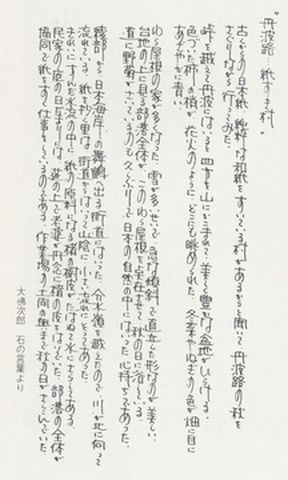 "丹波路…紙すき村"
古くからの日本紙、純粋な和紙をすいている村があると聞いて、丹波路の秋を
さぐりながら行ってみた。
峠を越えて丹波にはいると四方を山にかこまれて、美しく豊かな盆地がひらける。
色づいた柿の梢が花火のように、どこにも眺められた。冬菜やねぎの色が畑に目に
あざやかに青い。
わら屋根の家が多くなった。雪が多いせいで、急な傾斜で直立した形なのが美しい。
台地の上に見る部落全体が、このわら屋根を聚在させて、秋の日に浴している。
道に野菊がさいているのも久しぶりで日本の自然の中にはいった心持ちであった。
綾部から日本海岸の舞鶴へ出る街道になった。分水嶺を越えたので川が北に向って
流れている。紙を抄く里は街道からはいった山陰に、小さい流れにそってあった。
きれいにすんだ水流の中に、紙の原料になる楮の樹皮がたばねて水にさらしてある。
民家の庭の日だまりには、莚の上で老婆が丹念に楮の皮をはいでいた。部落の全体が
協同で紙をすく仕事をしているのである。作業場の土間の奥まで秋の日がさしこんでいた。
大佛次郎 石の言葉より